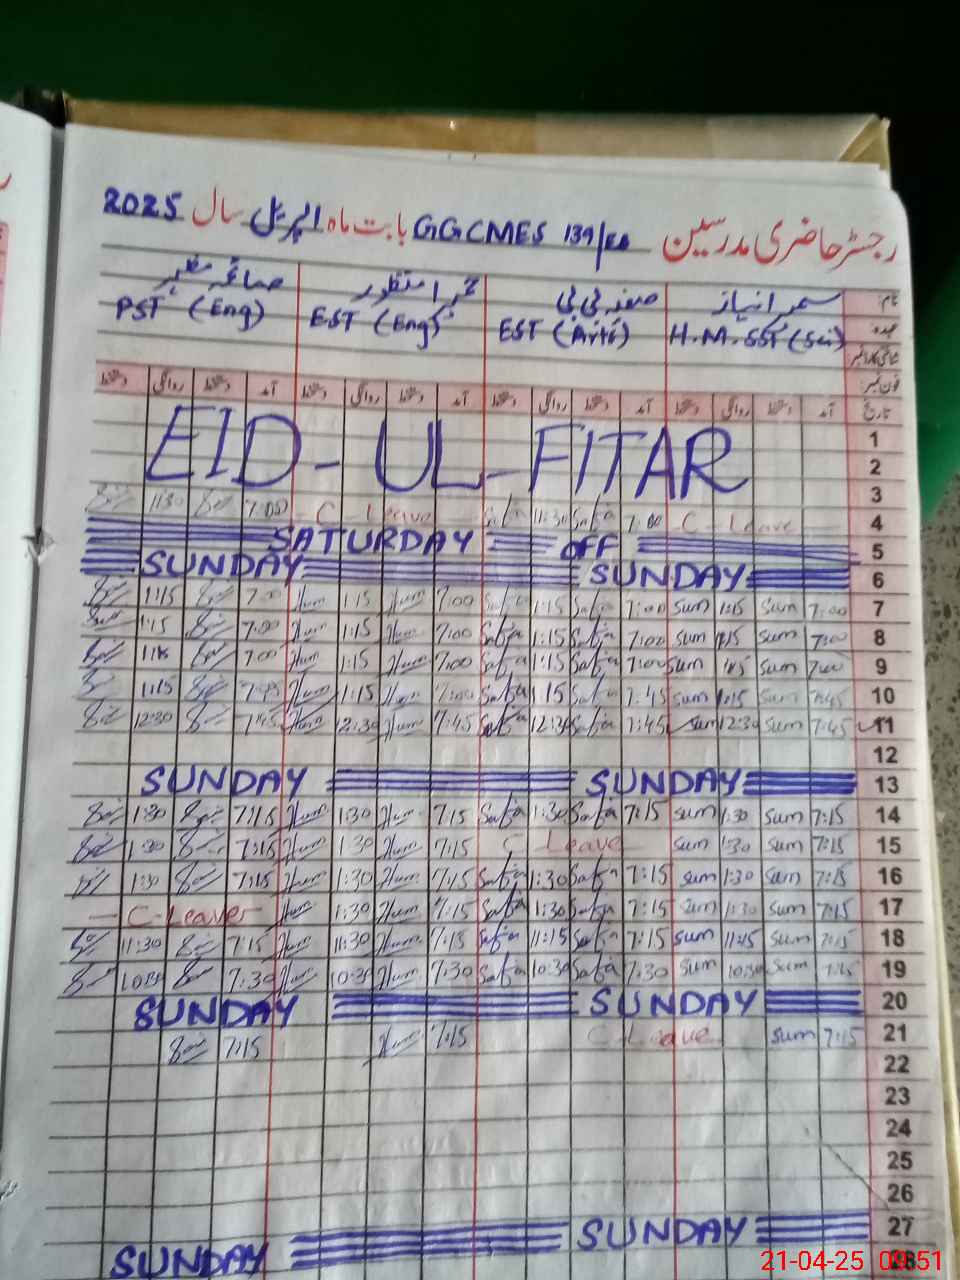 رجسٹر حاضری مدرسین GGCMES 139/EB بابت ماہ اپریل سال 2025
نام صفیہ بی بی
عہدہ H.M. SST (Sci) EST (Arts) EST (Eng) PST (Eng)
شناختی کارڈ نمبر
فون نمبر
تاریخ آمد دستخط روانگی دستخط آمد دستخط روانگی دستخط آمد دستخط روانگی دستخط آمد دستخط روانگی دستخط
1
EID - UL - FITAR
2
3
1:30 7:00 C - Leave Safia 11:30 Safia 7:00 C - Leave 4
SATURDAY OFF 5
SUNDAY SUNDAY 6
1:15 7:00 Hum 1:15 Hum 7:00 Safia 1:15 Safia 7:00 Sum 1:15 Sum 7:00 7
1:15 7:00 Hum 1:15 Hum 7:00 Safia 1:15 Safia 7:00 Sum 1:15 Sum 7:00 8
1:15 7:00 Hum 1:15 Hum 7:00 Safia 1:15 Safia 7:00 Sum 1:15 Sum 7:00 9
1:15 7:45 Hum 1:15 Hum 7:00 Safia 1:15 Safia 7:45 Sum 1:15 Sum 7:45 10
12:30 7:45 Hum 12:30 Hum 7:45 Safia 12:30 Safia 7:45 Sum 12:30 Sum 7:45 11
12
SUNDAY SUNDAY 13
1:30 7:15 Hum 1:30 Hum 7:15 Safia 1:30 Safia 7:15 Sum 1:30 Sum 7:15 14
1:30 7:15 Hum 1:30 Hum 7:15 C Leave Sum 1:30 Sum 7:15 15
1:30 7:15 Hum 1:30 Hum 7:15 Safia 1:30 Safia 7:15 Sum 1:30 Sum 7:15 16
- C-Leave Hum 1:30 Hum 7:15 Safia 1:30 Safia 7:15 Sum 1:30 Sum 7:15 17
11:30 7:15 Hum 11:30 Hum 7:15 Safia 11:15 Safia 7:15 Sum 11:45 Sum 7:15 18
10:30 7:30 Hum 10:30 Hum 7:30 Safia 10:30 Safia 7:30 Sum 10:30 Sum 7:15 19
SUNDAY SUNDAY 20
7:15 Hum 7:15 C Leave Sum 7:15 21
22
23
24
25
26
SUNDAY SUNDAY 27
28
21-04-25 09:51